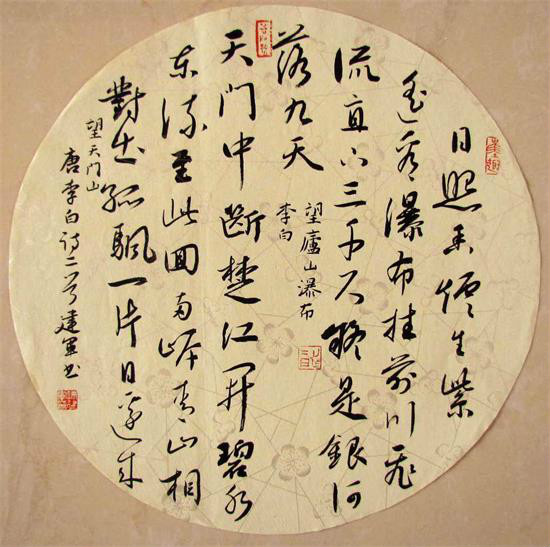 日照香炉生紫
遥看瀑布挂前川飞
流直下三千尺疑是銀河
落九天
望廬山瀑布
李白
天门中斷楚江开碧水
东流至此回两岸青山相
對出孤颿一片日边来
望天门山
唐李白诗二首建军书